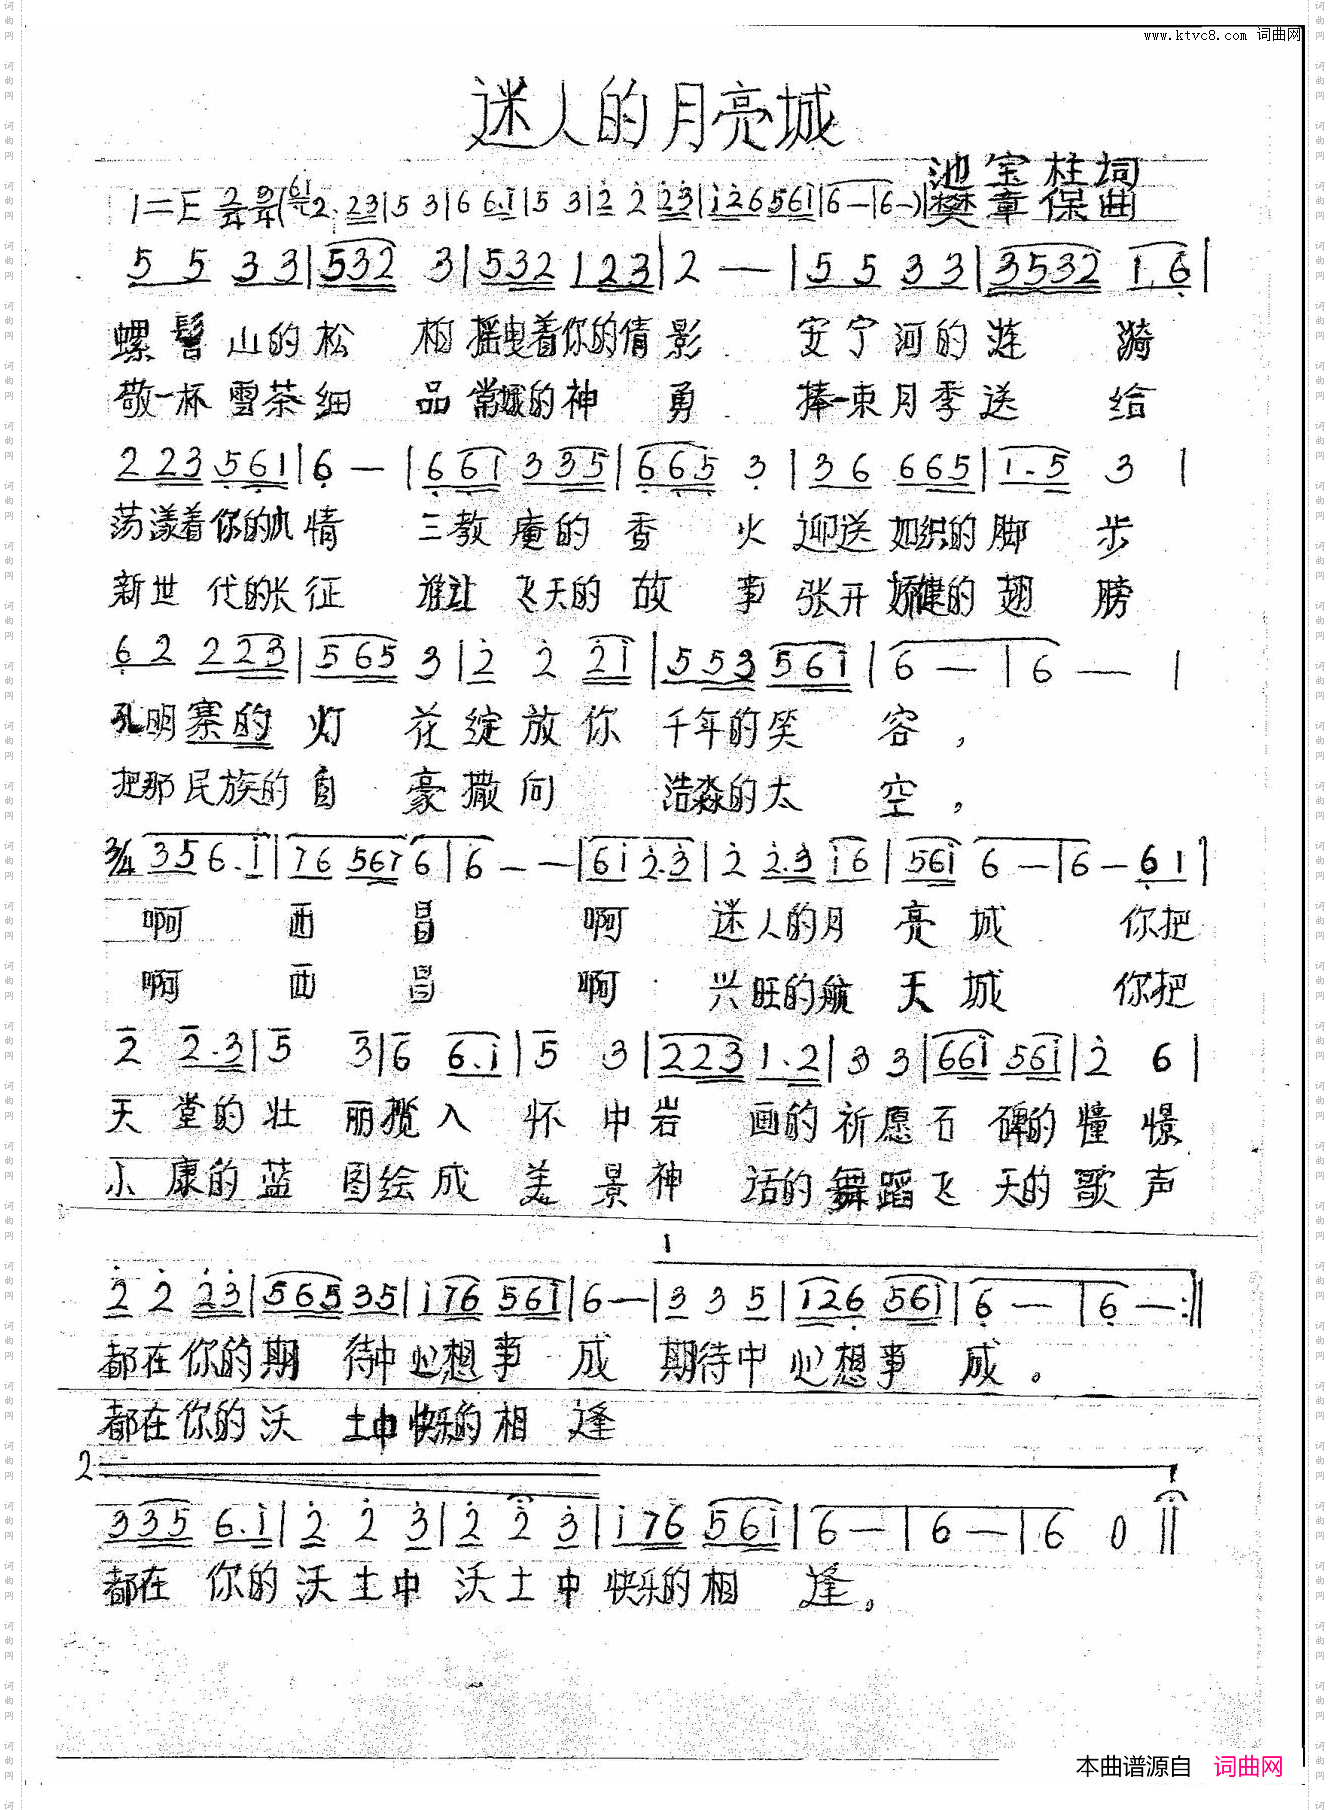 www.ktvc8.com 词曲网
迷人的月亮城
池宝柱词
1=E 2/4 3/4 (6i 2. 23|5 3|6 6.i|5 3|2 2 23|i26 56i|6—|6—) 樊章保曲
5 5 33|532 3|532 123|2 —|55 33|3532 1.6|
螺髻山的松 柏摇曳着你的倩影 安宁河的涟 漪
敬一杯雪茶细 品常娥的神 勇 捧一束月季送 给
223 561|6 —|661 335|665 3|36 665|1.5 3|
荡漾着你的 情 三教庵的香 火 迎送如织的脚 步
新世代的长征 谁让飞天的故 事 张开矫健的翅 膀
62 223|565 3|2 2 2i|553 56i|6 —|6 —|
孔明寨的灯 花绽放你 千年的笑 容，
把那民族的自 豪撒向 浩淼的太 空，
3/4 35 6.i|76 567 6|6 — —|6i 2.3|2 2.3 i6|56i 6 —|6 — 61|
啊 西 昌 啊 迷人的月 亮 城 你把
啊 西 昌 啊 兴旺的航 天 城 你把
2 2.3|5 3|6 6.i|5 3|223 1.2|3 3|66i 56i|2 6|
天 堂的壮 丽揽入 怀 中岩 画的祈愿石 碑的憧憬
小 康的蓝 图绘成 美 景神 话的舞蹈飞 天的歌声
1
2 2 23|565 35|i76 56i|6—|3 3 5|i26 56i|6 —|6 —:||
都在你的期 待中心想事 成 期待中心想事 成。
都在你的沃 土中快乐的相 逢
2
335 6.i|2 2 3|2 2 3|i76 56i|6 —|6 —|6 0||
都在 你的沃土中 沃土中快乐的相 逢。
本曲谱源自 词曲网